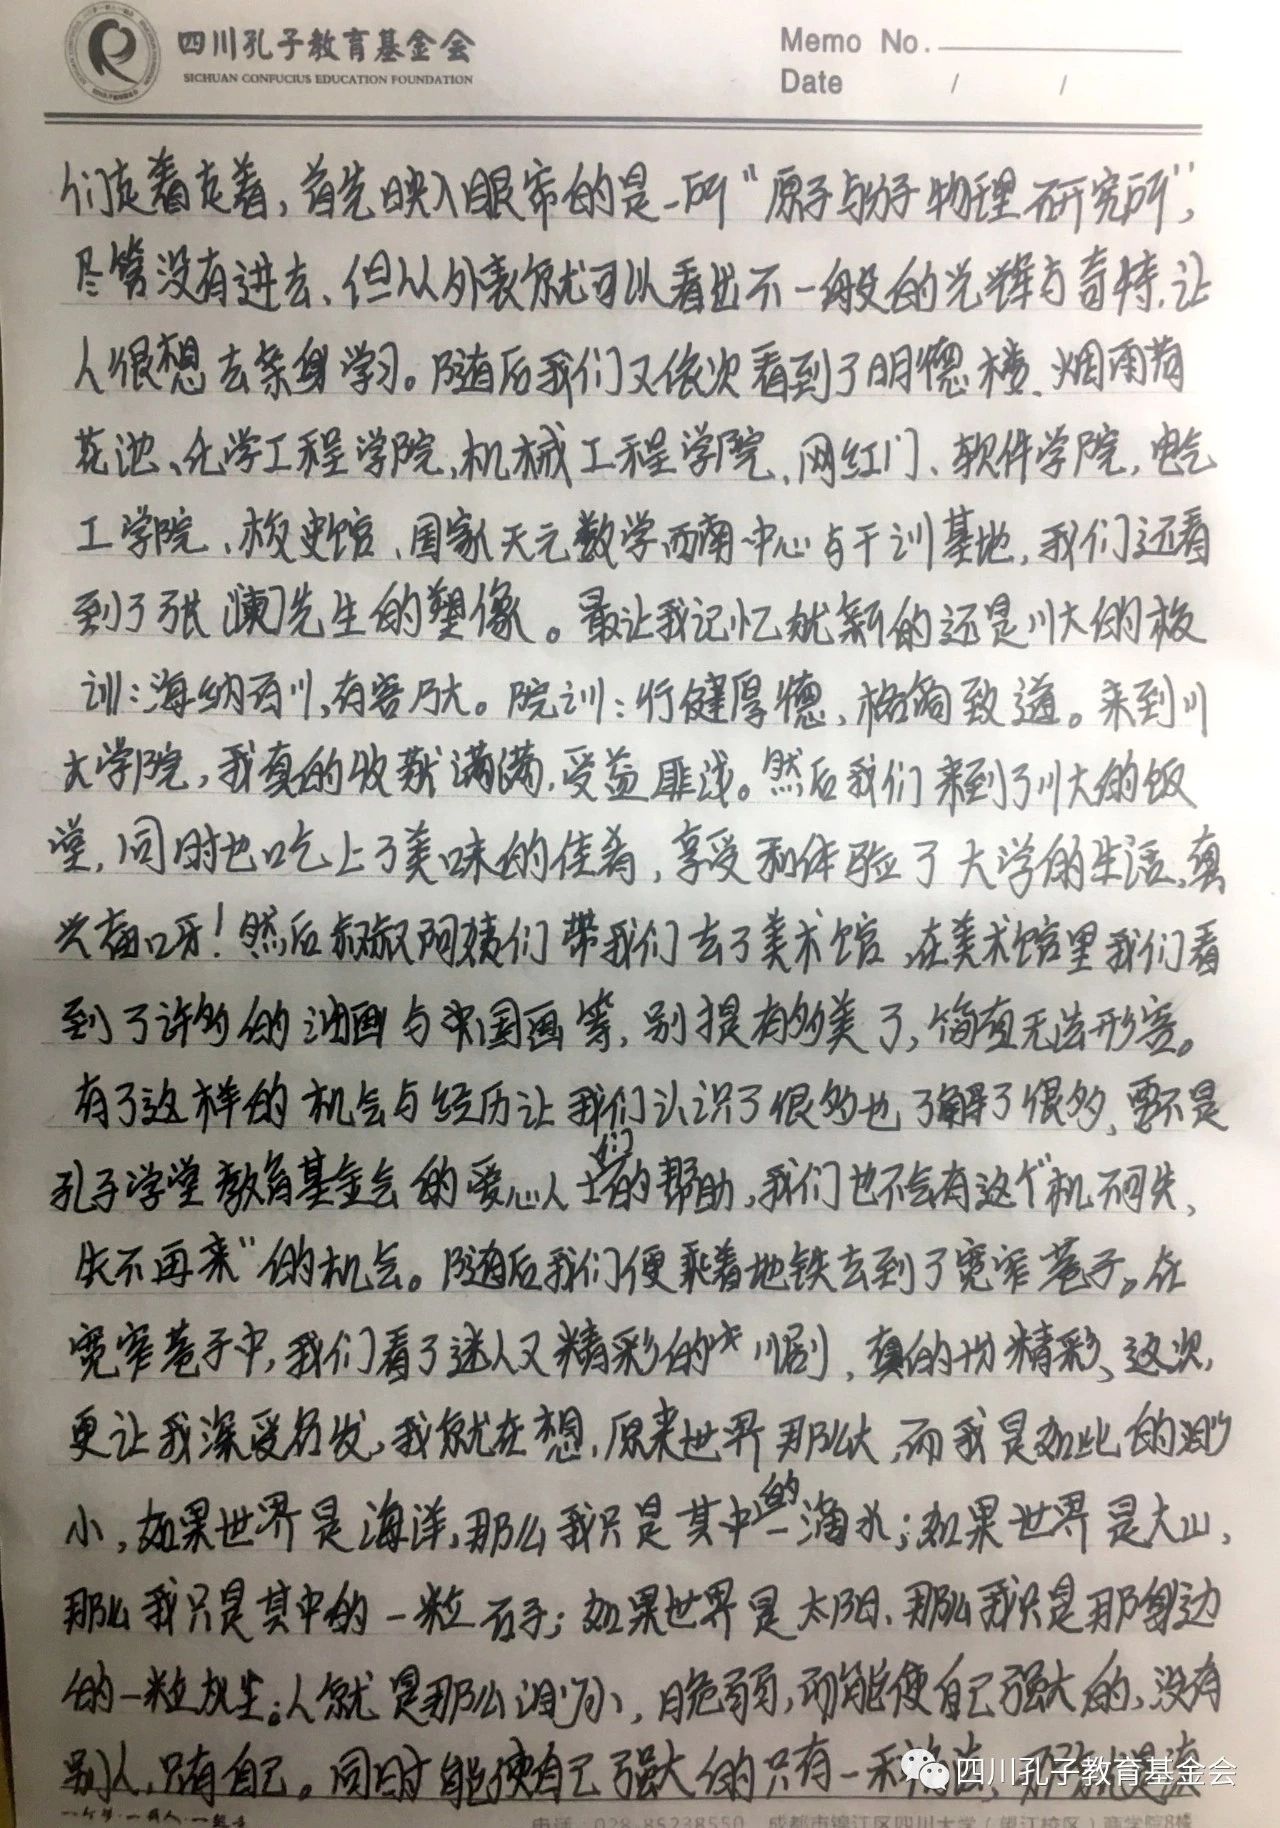 四川孔子教育基金会
SICHUAN CONFUCIUS EDUCATION FOUNDATION
Memo No.
Date / /
们走着走着，首先映入眼帘的是一所“原子与分子物理研究所”，
尽管没有进去、但从外表就可以看出不一般的光辉与奇特，让
人很想去亲身学习。随后我们又依次看到了明德楼、烟雨荷
花池、化学工程学院、机械工程学院、网红门、软件学院，电气
工学院、校史馆、国家天元数学西南中心与干训基地，我们还看
到了张澜先生的塑像。最让我记忆犹新的还是川大的校
训：海纳百川，有容乃大。院训：行健厚德，格物致道。来到川
大学院，我真的收获满满，受益匪浅。然后我们来到了川大的饭
堂，同时也吃上了美味的佳肴，享受和体验了大学的生活，真
兴奋呀！然后叔叔阿姨们带我们去了美术馆，在美术馆里我们看
到了许多的油画与中国画等，别提有多美了，简直无法形容。
有了这样的机会与经历让我们认识了很多也了解了很多，要不是
孔子学堂教育基金会的爱心人士们的帮助，我们也不会有这个“机不可失，
失不再来”的机会。随后我们便乘着地铁去到了宽窄巷子。在
宽窄巷子中，我们看了迷人又精彩的川剧，真的十分精彩、这次，
更让我深受启发，我就在想，原来世界那么大，而我是如此的渺
小，如果世界是海洋，那么我只是其中的一滴水；如果世界是大山，
那么我只是其中的一粒石子；如果世界是太阳、那么我只是那身边
的一粒灰尘。人就是那么渺小，脆弱，而能使自己强大的，没有
别人，只有自己。同时能使自己强大的只有一
四川孔子教育基金会
电话：028-85238550 成都市锦江区四川大学（望江校区）商学院8楼